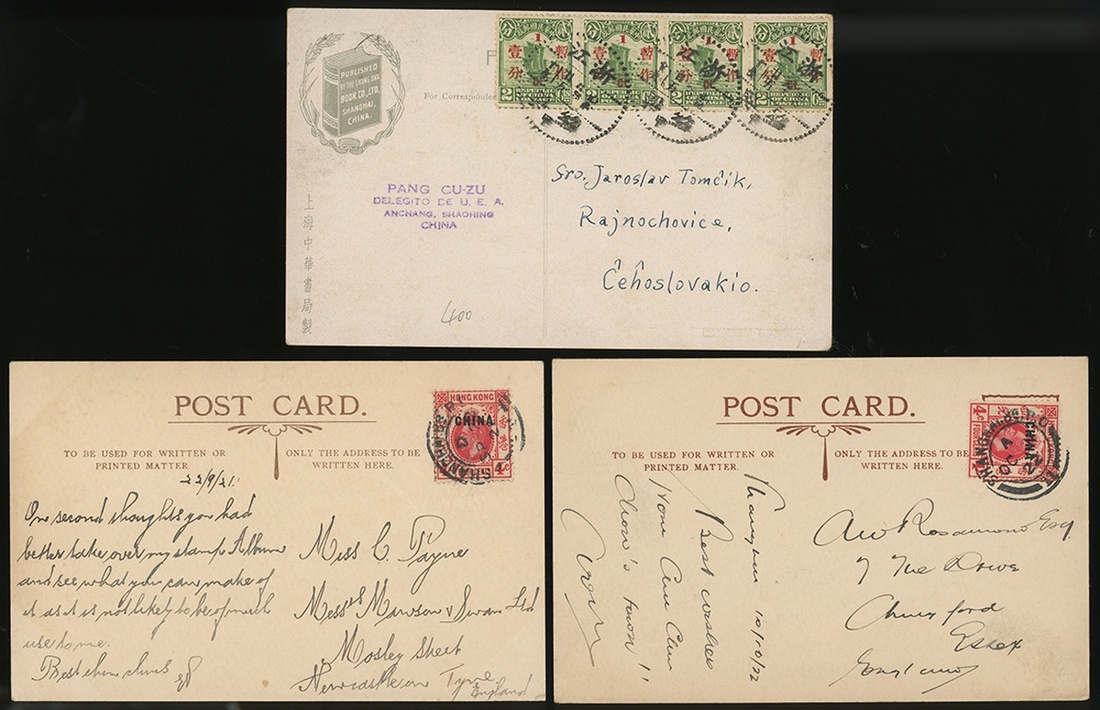 PUBLISHED
BY THE CHUNG HWA
BOOK CO., LTD.
SHANGHAI,
CHINA.
For Corresponden
1
暫作
壹分
2
1
暫作
壹分
2
1
暫作
壹分
2
1
暫作
壹分
2
上海中華書局製
PANG CU-ZU
DELEGITO DE U. E. A.
ANCHANG, SHAOHING
CHINA
400
Sro. Jaroslav Tomčik,
Rajnochovice,
Ĉeĥoslovakio.
POST CARD.
TO BE USED FOR WRITTEN OR
PRINTED MATTER.
ONLY THE ADDRESS TO BE
WRITTEN HERE.
HONG KONG
CHINA
4c
SHANGHAI
22/9/21.
On second thoughts you had
better take over my stamp Album
and see what you can make of
it as it is not likely to be of much
use to me.
Miss C. Payne
Messrs Mawson & Swan Ltd
Mosley Street
Newcastle on Tyne
England
POST CARD.
TO BE USED FOR WRITTEN OR
PRINTED MATTER.
ONLY THE ADDRESS TO BE
WRITTEN HERE.
4c
CHINA
SHANGHAI
22
Shanghai 10/10/22
Best wishes
from
Chow's town!!
AW Rosamond Esq
7 The Drive
Chingford
Essex
England